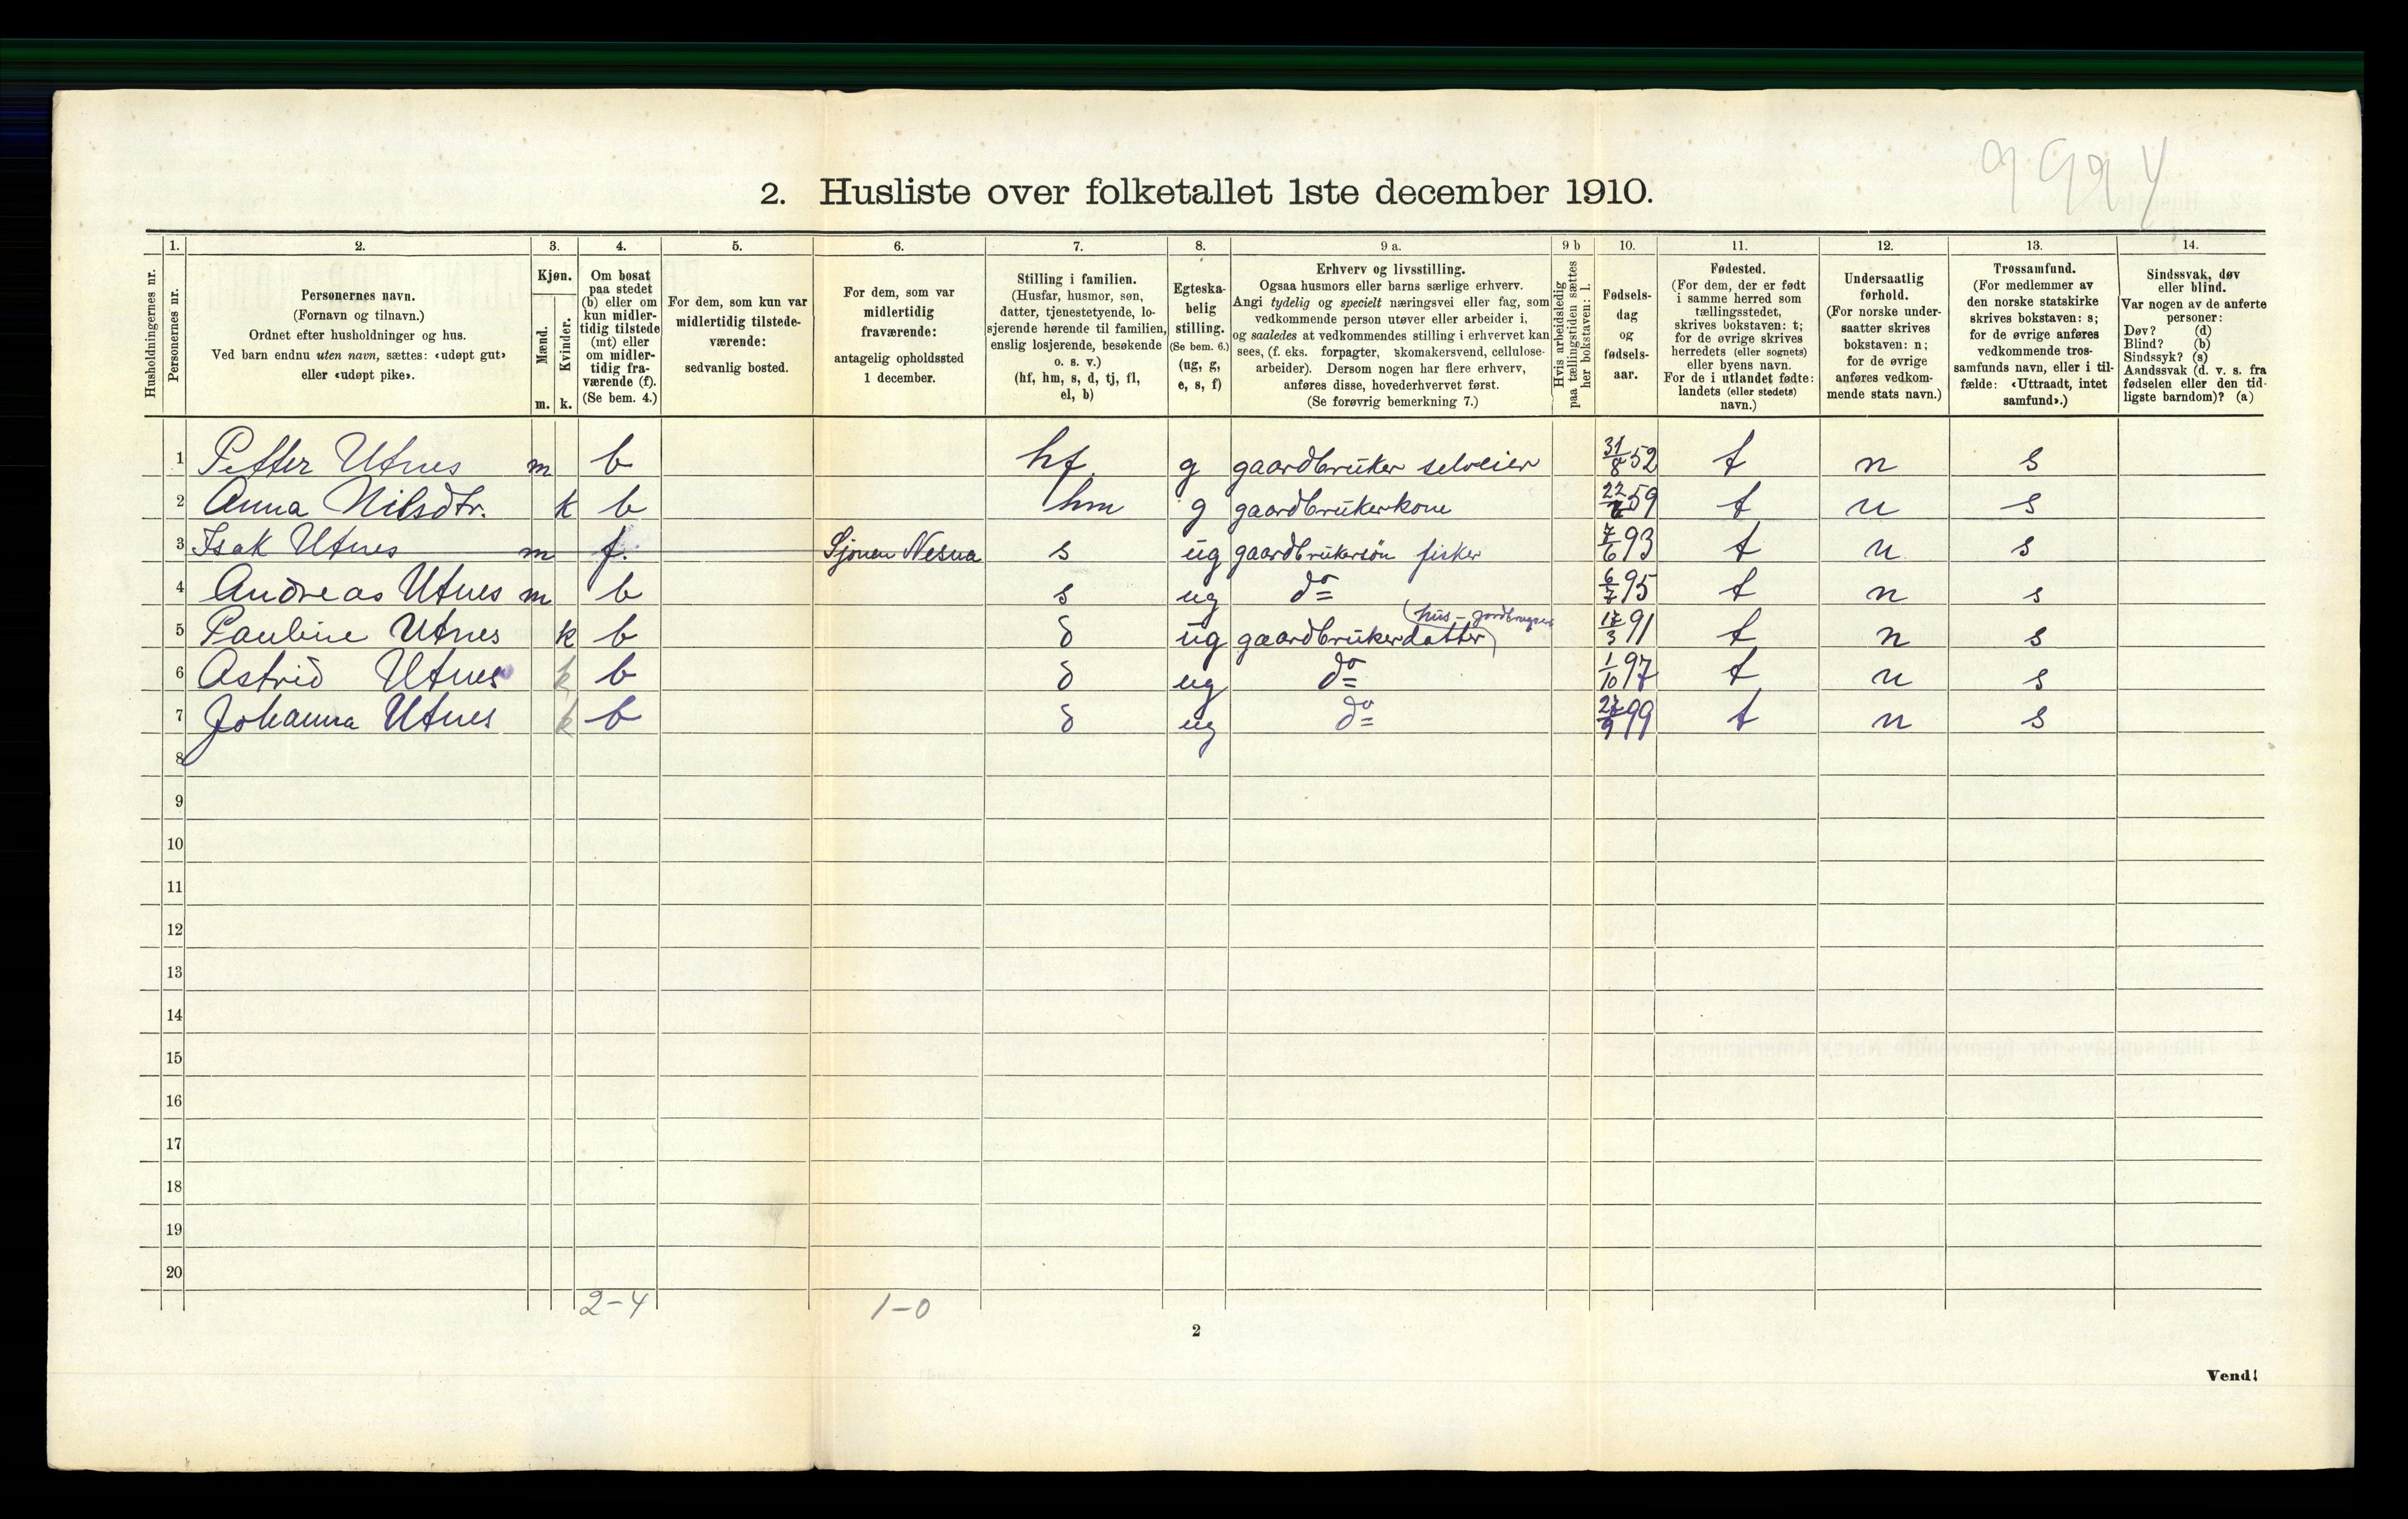 9994
2. Husliste over folketallet 1ste december 1910.
1. 2. 3. 4. 5. 6. 7. 8. 9 a. 9 b 10. 11. 12. 13. 14.
Husholdningernes nr.
Personernes nr.
Personernes navn.
(Fornavn og tilnavn.)
Ordnet efter husholdninger og hus.
Ved barn endnu uten navn, sættes: «udøpt gut»
eller «udøpt pike».
Kjøn.
Mænd.
Kvinder.
m. k.
Om bosat
paa stedet
(b) eller om
kun midler-
tidig tilstede
(mt) eller
om midler-
tidig fra-
værende (f).
(Se bem. 4.)
For dem, som kun var
midlertidig tilstede-
værende:
sedvanlig bosted.
For dem, som var
midlertidig
fraværende:
antagelig opholdssted
1 december.
Stilling i familien.
(Husfar, husmor, søn,
datter, tjenestetyende, lo-
sjerende hørende til familien,
enslig losjerende, besøkende
o. s. v.)
(hf, hm, s, d, tj, fl,
el, b)
Egteska-
belig
stilling.
(Se bem. 6.)
(ug, g,
e, s, f)
Erhverv og livsstilling.
Ogsaa husmors eller barns særlige erhverv.
Angi tydelig og specielt næringsvei eller fag, som
vedkommende person utøver eller arbeider i,
og saaledes at vedkommendes stilling i erhvervet kan
sees, (f. eks. forpagter, skomakersvend, cellulose-
arbeider). Dersom nogen har flere erhverv,
anføres disse, hovederhvervet først.
(Se forøvrig bemerkning 7.)
Hvis arbeidsledig
paa tællingstiden sættes
her bokstaven: l.
Fødsels-
dag
og
fødsels-
aar.
Fødested.
(For dem, der er født
i samme herred som
tællingsstedet,
skrives bokstaven: t;
for de øvrige skrives
herredets (eller sognets)
eller byens navn.
For de i utlandet fødte:
landets (eller stedets)
navn.)
Undersaatlig
forhold.
(For norske under-
saatter skrives
bokstaven: n;
for de øvrige
anføres vedkom-
mende stats navn.)
Trossamfund.
(For medlemmer av
den norske statskirke
skrives bokstaven: s;
for de øvrige anføres
vedkommende tros-
samfunds navn, eller i til-
fælde: «Uttraadt, intet
samfund».)
Sindssvak, døv
eller blind.
Var nogen av de anførte
personer:
Døv? (d)
Blind? (b)
Sindssyk? (s)
Aandssvak (d. v. s. fra
fødselen eller den tid-
ligste barndom)? (a)
1 Petter Utnes m b hf g gaardbruker selveier 31/8 52 t n s
2 Anna Nilsdtr. k b hm g gaardbrukerkone 22/ 59 t n s
3 Isak Utnes m f. Sjonen Nesna s ug gaardbrukersøn fisker 7/6 93 t n s
4 Andreas Utnes m b s ug do 6/7 95 t n s
(hus- jordbruger
5 Pauline Utnes k b d ug gaardbrukerdatter) 17/3 91 t n s
6 Astrid Utnes k b d ug do 1/10 97 t n s
7 Johanna Utnes k b d ug do 27/9 99 t n s
8
9
10
11
12
13
14
15
16
17
18
19
20
2-4 1-0
2
Vend!